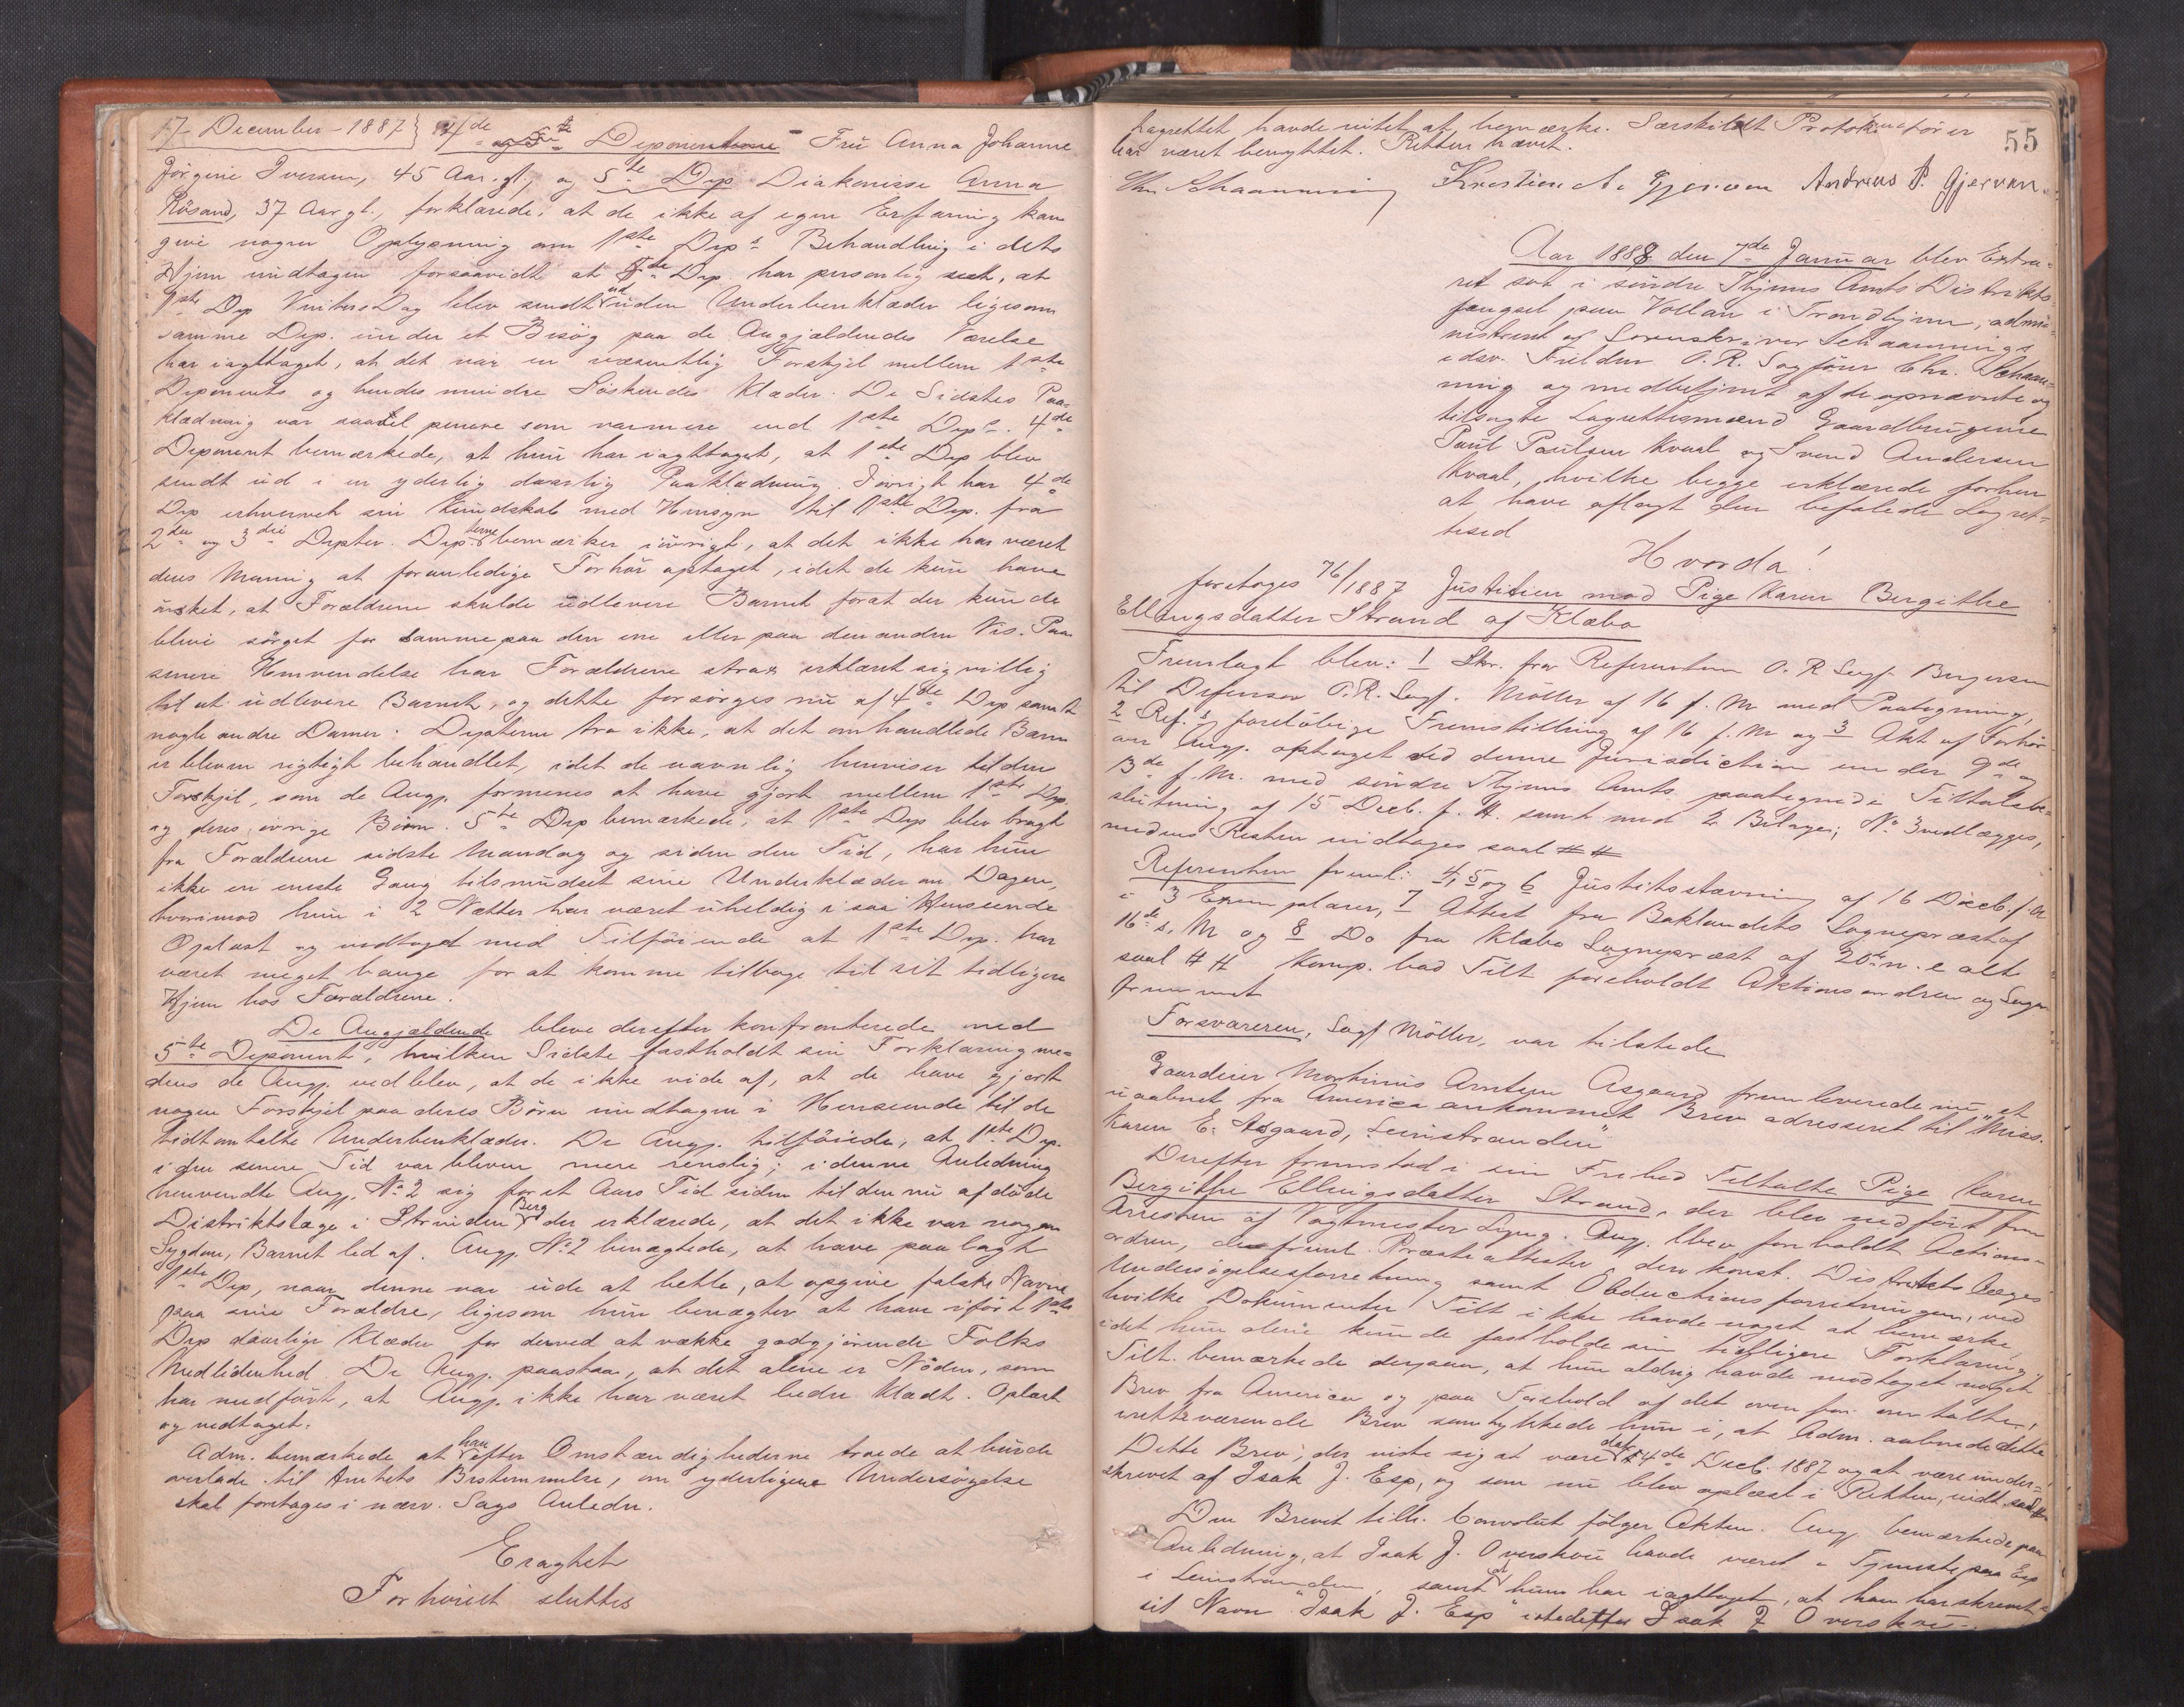 17 December - 1887 4de og 5te Deponentene Fru Anna Johanne
Jörgine Iversen, 45 Aar gl., og 5te Dep Diakonisse Anna
Rösand, 37 Aar gl., forklarede, at de ikke af egen Erfaring kan
give nogen Oplysning om 1ste Deps Behandling i dets
Hjem undtagen forsaavidt at 5te Dep. har personlig seet, at
1ste Dep Vinters Dag blev sendt ud uden Underbenklæder ligesom
samme Dep. under et Besög paa de Angjældendes Værelse
har iagttaget, at det var en væsentlig Forskjel mellem 1ste
Deponents og hendes mindre Söskendes Klæder. De Sidstes Paa-
klædning var saavel penere som varmere end 1ste Deps. 4de
Deponent bemærkede, at hun har iagttaget, at 1ste Dep blev
sendt ud i en yderlig daarlig Paaklædning. Iövrigt har 4de
Dep erhvervet sin Kundskab med Hensyn til 1ste Dep. fra
2den og 3die Depter. Dep.terne bemærker iövrigt, at det ikke har været
deres Mening at foranledige Forhör optaget, idet de kun have
önsket, at Forældrene skulde udlevere Barnet forat der kunde
blive sörget for samme paa den ene eller paa den anden Vis. Paa
senere Henvendelse har Forældrene strax erklæret sig villig
til at udlevere Barnet, og dette forsörges nu af 4de Dep samt
nogle andre Damer. Depterne tro ikke, at det omhandlede Barn
er bleven rigtigt behandlet, idet de navnlig henviser til den
Forskjel, som de Angj. formenes at have gjort mellem 1ste Dep.
og deres övrige Börn. 5te Dep bemærkede, at 1ste Dep blev bragt
fra Forældrene sidste Mandag og siden den Tid, har hun
ikke en eneste Gang tilsmudset sine Underklæder om Dagen,
hvorimod hun i 2 Nætter har været uheldig i saa Henseende
Oplæst og vedtaget med Tilföiende at 1ste Dep. har
været meget bange for at komme tilbage til sit tidligere
Hjem hos Forældrene.
De Angjældende bleve derefter konfronterede med
5te Deponent, hvilken Sidste fastholdt sin Forklaring me-
dens de Angj. vedblev, at de ikke vide af, at de have gjort
nogen Forskjel paa deres Börn undtagen i Henseende til de
tidtomtalte Underbenklæder. De Angj. tilföiede, at 1ste Dep.
i den senere Tid var bleven mere renslig; i denne Anledning
henvendte Angj. No 2 sig for et Aars Tid siden til den nu afdöde
Distriktslæge i Strinden Berg der erklærede, at det ikke var nogen
Sygdom, Barnet led af. Angj. No 2 benægtede, at have paalagt
1ste Dep, naar denne var ude at betle, at opgive falske Navne
paa sine Forældre, ligesom hun benægter at have iført 1ste
Dep daarlige Klæder for derved at vække godgjörende Folks
Medlidenhed. De Angj. paastaa, at det alene er Nöden, som
har medfört, at Angj. ikke har været bedre klædt. Oplæst
og vedtaget.
Adm. bemærkede at han efter Omstændighederne troede at burde
overlade til Amtets Bestemmelse, om yderligere Undersögelse
skal foretages i nærv. Sags Anledn.
Eragtet
Forhöret sluttes
55
Lagrettet havde intet at bemærke. Særskildt Protokolförer
har været benyttet. Retten hævet.
Chr. Schaanning Kristian A. Gjervan Andreas P. Gjervan.
Aar 1888 den 7de Januar blev Extra-
ret sat i söndre Thjems Amts Distrikts-
fængsel paa Vollan i Trondhjem, admi-
nistreret af Sorenskriver Schaannings
edsv. Fuldm. O. R. Sagförer Chr. Schaan-
ning og medbetjent af de opnævnte og
tilsagte Lagrettesmænd Gaardbrugerne
Paul Paulsen Kvaal og Svend Andersen
Kvaal, hvilke begge erklærede forhen
at have aflagt den befalede Lagret-
tesed
Hvorda!
foretoges 76/1887 Justitien mod Pige Karen Bergithe
Ellingsdatter Strand af Klæbo
Fremlagt blev: 1 Skr. fra Referenten O. R Sagf. Birgersen
til Defensor O.R. Sagf. Möller af 16 f. M med Paategning,
2 Ref.s foreløbige Fremstilling af 16 f. M og 3 Akt af Forhör
over Angj. optaget ved denne Jurisdiction under 9de og
13de f.M. med söndre Thjems Amts paategnede Tiltalebe-
slutning af 15 Decb. f. A. samt med 2 Bilager; No 3 vedlægges,
medens Resten indtages saal # #
Referenten freml: 4, 5 og 6 Justitsstævning af 16 Decb. f. A
i 3 Exemplarer, 7 Attest fra Baklandets Sogneprest af
16de s. M og 8 Do fra Klæbo Sogneprest af 20de n. e alt
saal # # Komp. bad Tilt foreholdt Aktionsordren og Sagen
fremmet
Forsvareren, Sagf Möller, var tilstede
Gaardeier Martinus Arntsen Asgaard fremleverede nu et
uaabnet fra America ankommet Brev adresseret til "Miss.
Karen E. Asgaard, Leinstranden"
Derefter fremstod i sin Frihed Tiltalte Pige Karen
Bergithe Ellingsdatter Strand, der blev nedfört fra
Arresten af Vagtmester Lyng. Angj. blev foreholdt Actions-
ordren, de freml. Præsteattester, den konst. Distriktslæges
Undersögelsesforretning samt Obductionsforretningen, ved
hvilke Dokumenter Tilt ikke havde noget at bemærke,
idet hun alene kunde fastholde sin tidligere Forklaring,
Tilt. bemærkede dernæst, at hun aldrig havde modtaget noget
Brev fra America og paa Forehold af det ovenfor omtalte,
retteværende Brev samtykkede hun i, at Adm. aabnede dette
Dette Brev, der viste sig at være dat 4de Decb. 1887 og at være under-
skrevet af Isak J. Esp, og som nu blev oplæst i Retten, indt saal #
Den Brevet tilh. Convolut fölger Akten. Angj. bemærkede paa
Anledning, at Isak J. Overskou havde været i Tjeneste paa Esp
i Leinstranden, samt at hun har iagttaget, at han har skrevet
sit Navn "Isak J. Esp" istedetfor Isak J Overskou.